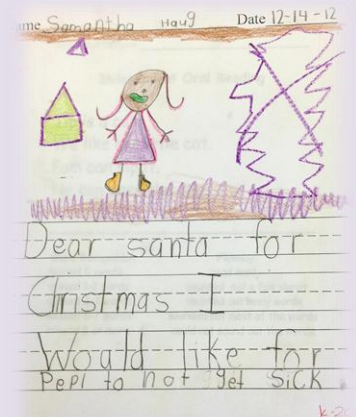 me Samantha Haug Date 12-14-12
Dear santa for
Cristmas I
Would like for
PePl to not get SiCK